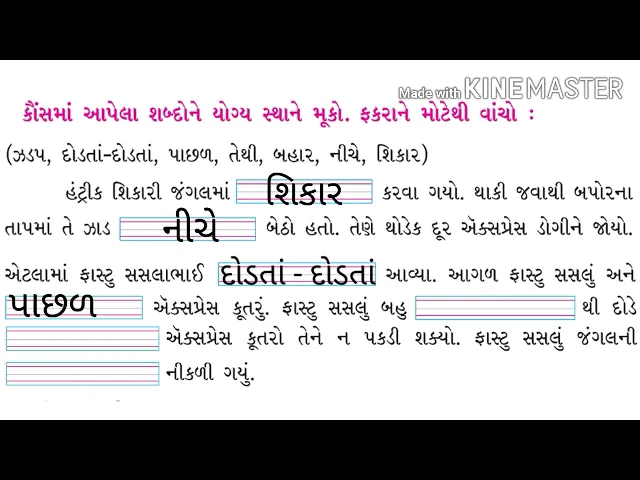 Made with KINEMASTER
કૌંસમાં આપેલા શબ્દોને યોગ્ય સ્થાને મૂકો. ફકરાને મોટેથી વાંચો :
(ઝડપ, દોડતાં-દોડતાં, પાછળ, તેથી, બહાર, નીચે, શિકાર)
હંટ્રીક શિકારી જંગલમાં શિકાર કરવા ગયો. થાકી જવાથી બપોરના
તાપમાં તે ઝાડ નીચે બેઠો હતો. તેણે થોડેક દૂર ઍક્સપ્રેસ ડોગીને જોયો.
એટલામાં ફાસ્ટુ સસલાભાઈ દોડતાં - દોડતાં આવ્યા. આગળ ફાસ્ટુ સસલું અને
પાછળ ઍક્સપ્રેસ કૂતરું. ફાસ્ટુ સસલું બહુ થી દોડે
ઍક્સપ્રેસ કૂતરો તેને ન પકડી શક્યો. ફાસ્ટુ સસલું જંગલની
નીકળી ગયું.